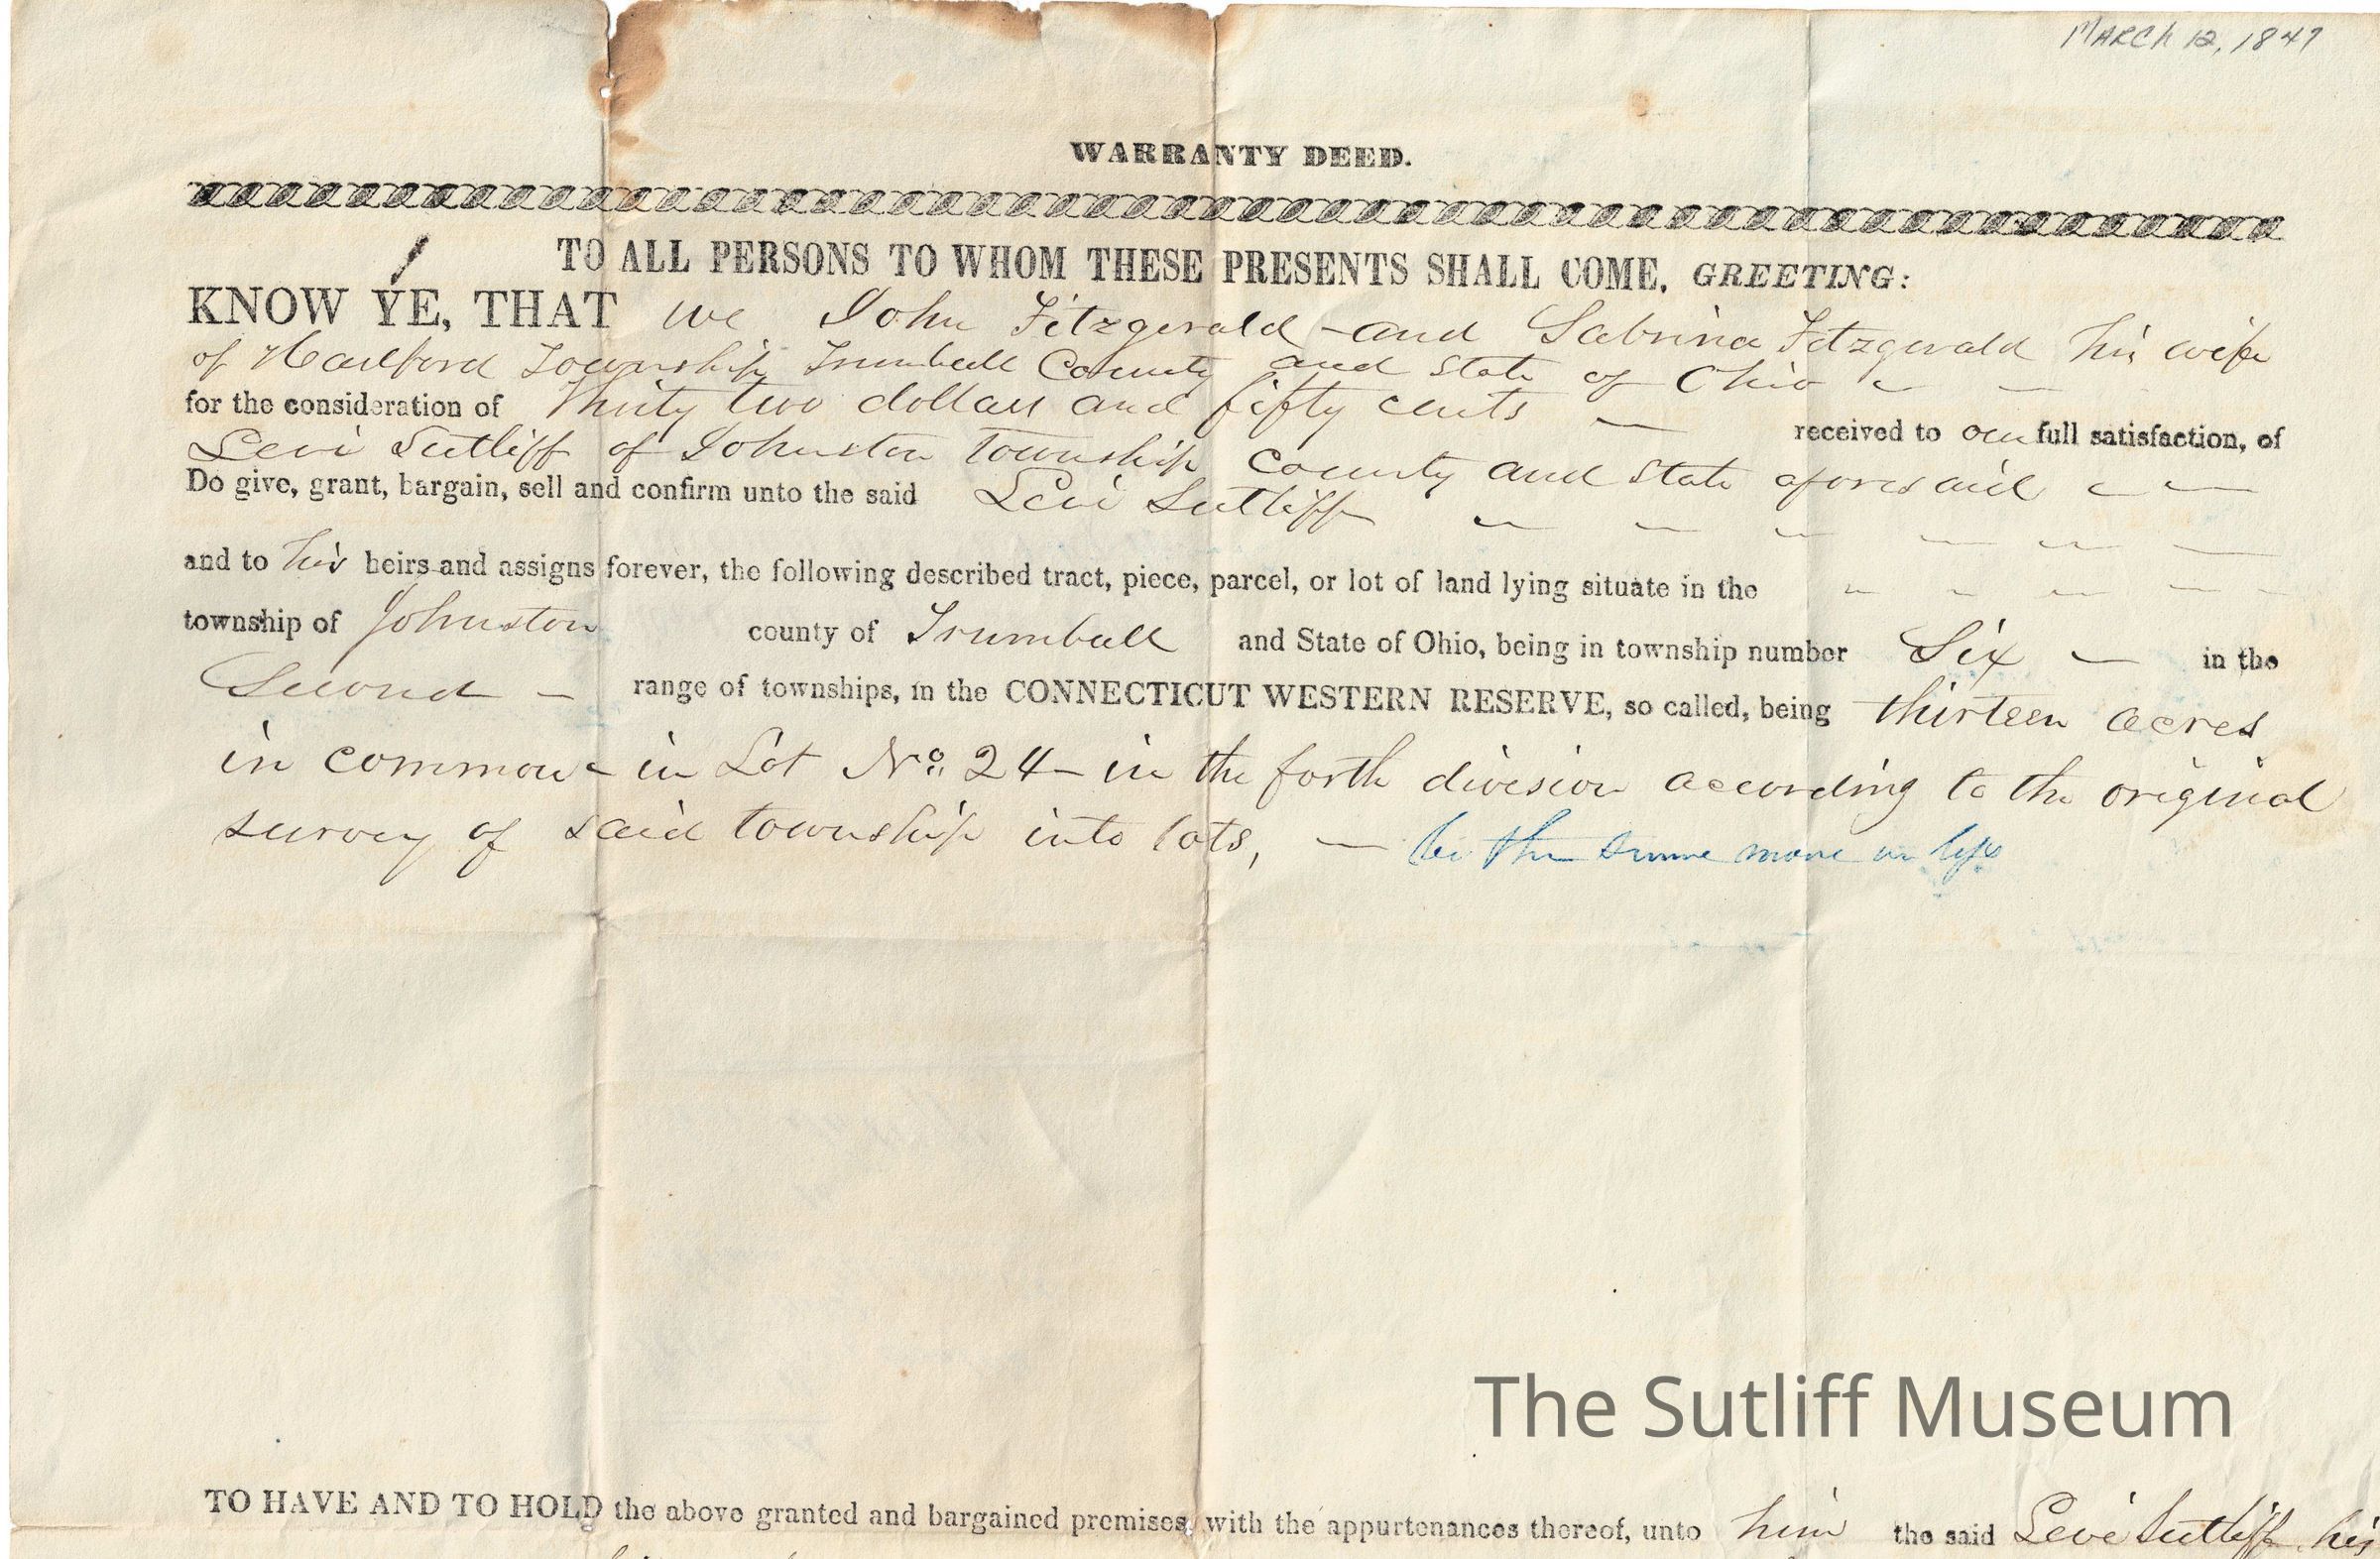 MARCH 12, 1847
WARRANTY DEED.
TO ALL PERSONS TO WHOM THESE PRESENTS SHALL COME, GREETING:
KNOW YE, THAT we John Fitzgerald - and Sabrina Fitzgerald his wife
of Hartford Township Trumbull County and State of Ohio
for the consideration of Thirty two dollars and fifty cents — received to our full satisfaction, of
Levi Sutliff of Johnston Township County and State aforesaid
Do give, grant, bargain, sell and confirm unto the said Levi Sutliff
and to his heirs and assigns forever, the following described tract, piece, parcel, or lot of land lying situate in the
township of Johnston county of Trumbull and State of Ohio, being in township number Six — in the
Second — range of townships, in the CONNECTICUT WESTERN RESERVE, so called, being thirteen acres
in common - in Lot No. 24 - in the forth division according to the original
survey of said township into lots, — be the same more or less
The Sutliff Museum
TO HAVE AND TO HOLD the above granted and bargained premises, with the appurtenances thereof, unto him the said Levi Sutliff, his